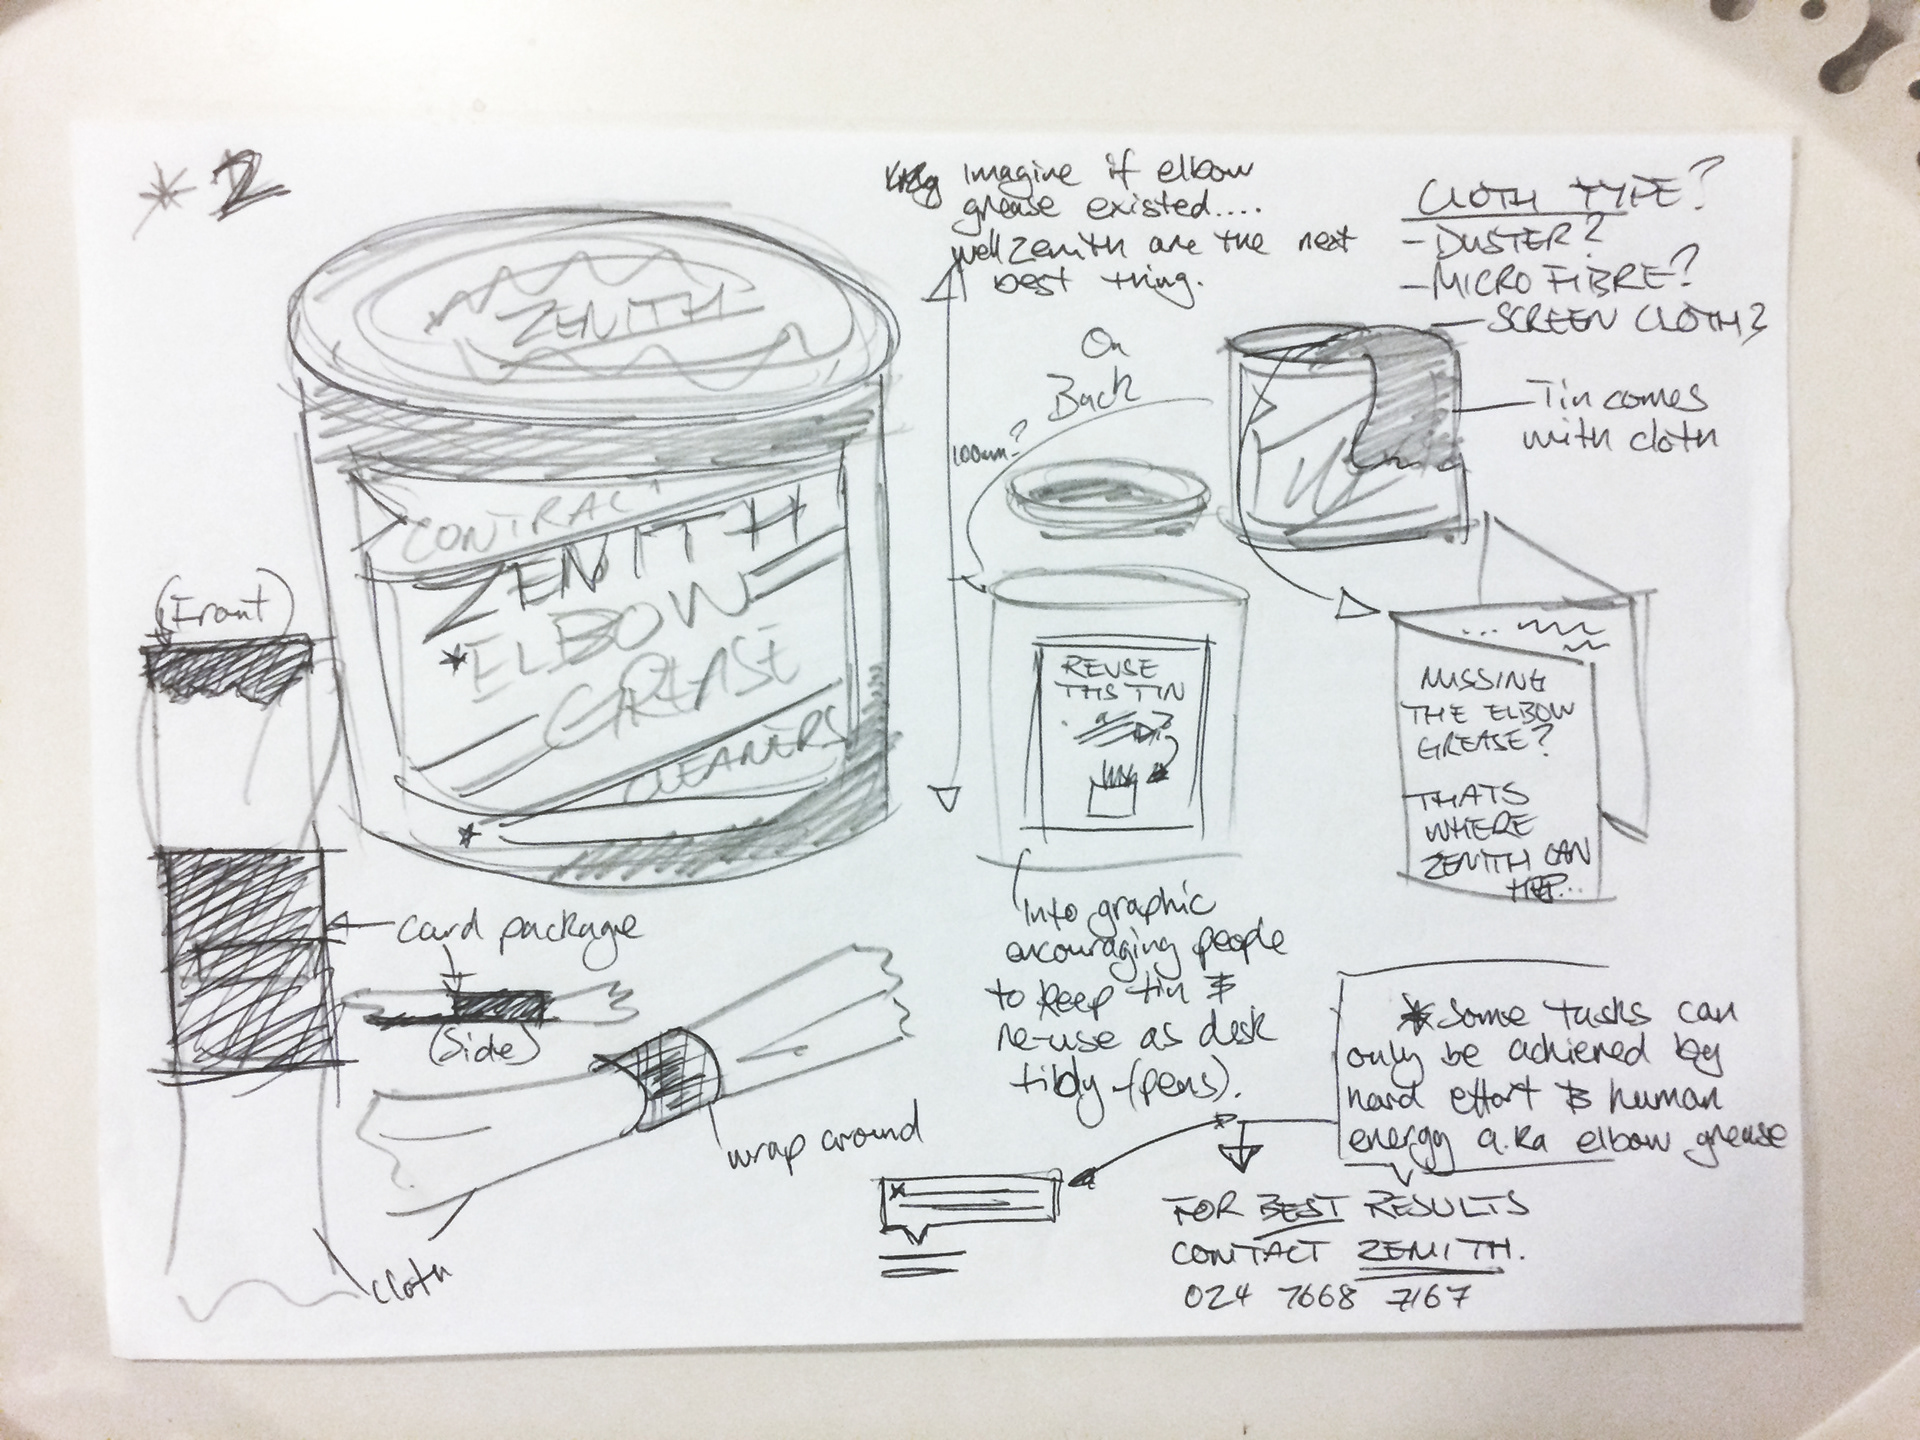 *2
Imagine if elbow
grease existed....
well Zenith are the next
best thing.
CLOTH TYPE?
- DUSTER?
- MICRO FIBRE?
- SCREEN CLOTH?
On
Back
Tin comes
with cloth
100mm?
ZENITH
CONTRACT
ZENITH
*ELBOW
GREASE
CLEANERS
*
(Front)
REUSE
THIS TIN
MISSING
THE ELBOW
GREASE?
THATS
WHERE
ZENITH CAN
HELP...
card package
(Side)
wrap around
cloth
Info graphic
encouraging people
to keep tin &
re-use as desk
tidy (pens).
*Some tasks can
only be achieved by
hard effort & human
energy a.k.a elbow grease
FOR BEST RESULTS
CONTACT ZENITH.
024 7668 7167